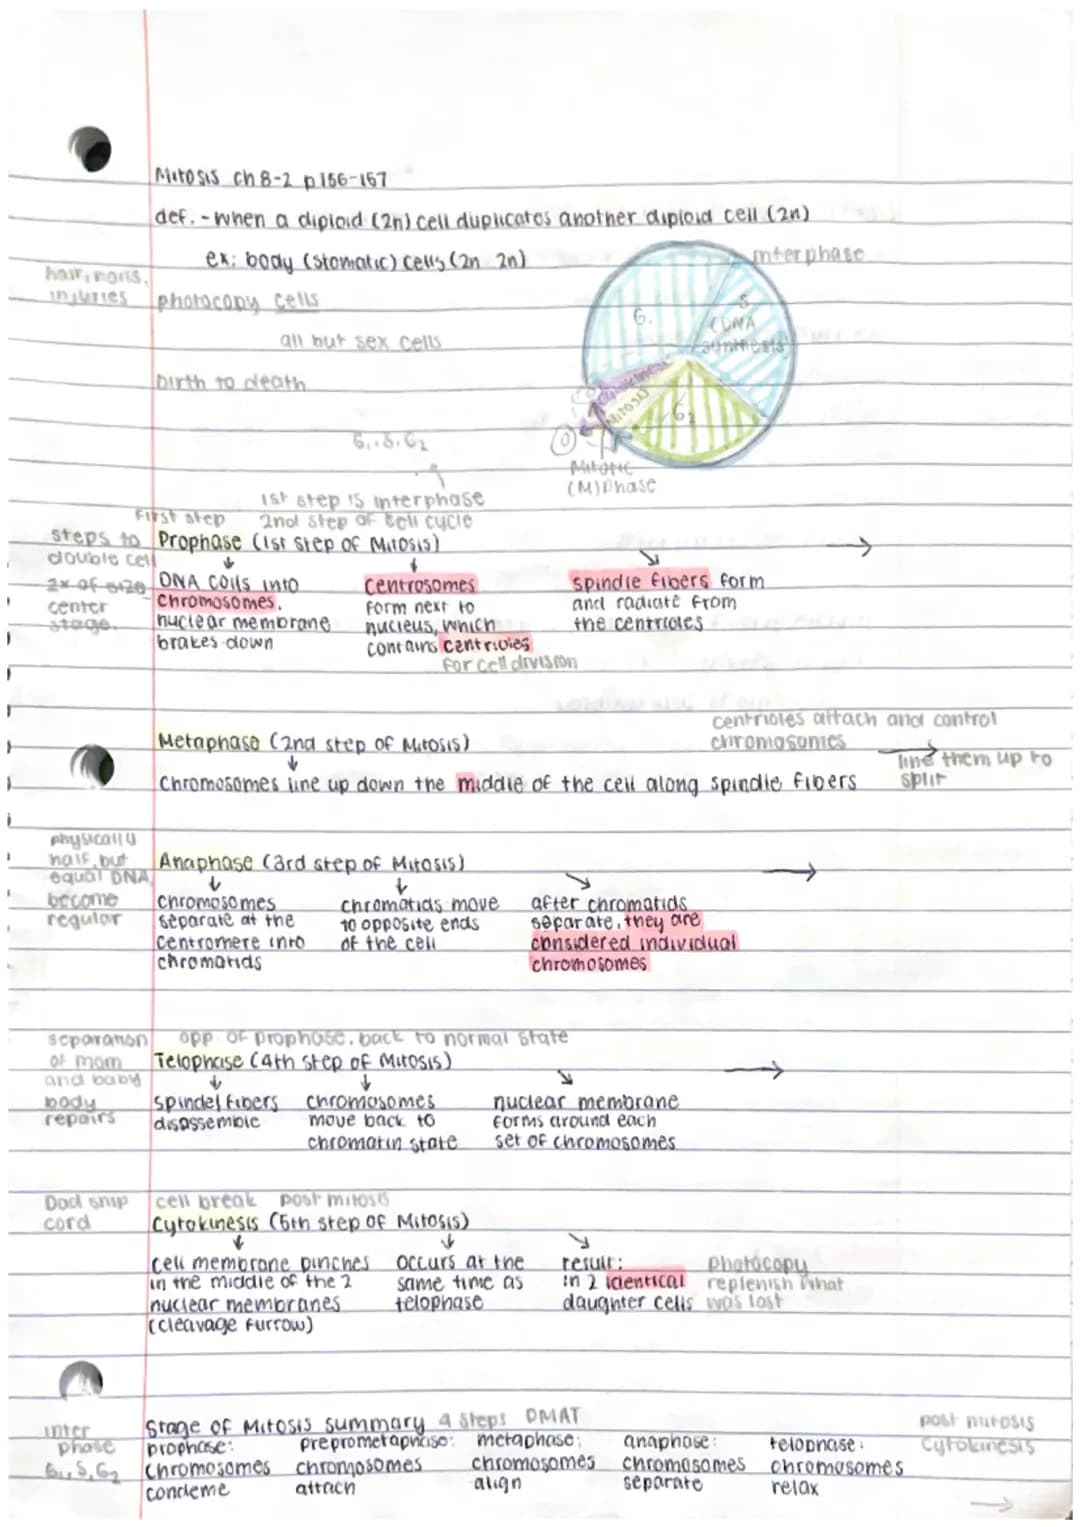 Mitosis ch 8-2 p156-157
def. - when a diploid (2n) cell duplicates another diploid cell (2n)
ex: body (stomatic) cells (2n 2n)
interphase
hair, nails,
injuries
photocopy cells
G1
S
(DNA
synthesis)
all but sex cells
birth to death
cytokinesis
mitosis
G2
G1, S, G2
Mitotic
(M) Phase
1st step is interphase
First step 2nd step of cell cycle
steps to
double cell
2x of size
center
stage.
Prophase (1st step of Mitosis)
DNA coils into
chromosomes.
nuclear membrane
brakes down
centrosomes
form next to
nucleus, which
contains centrioles
for cell division
spindle fibers form
and radiate from
the centrioles
centrioles attach and control
chromosomes
line them up to
split
Metaphase (2nd step of Mitosis)
Chromosomes line up down the middle of the cell along spindle fibers
physically
half, but
equal DNA
become
regular
Anaphase (3rd step of Mitosis)
chromosomes
separate at the
centromere into
chromatids
chromatids move
to opposite ends
of the cell
after chromatids
separate, they are
considered individual
chromosomes
separation
of mom
and baby
body
repairs
opp. of prophase. back to normal state
Telophase (4th step of Mitosis)
spindel fibers
disassemble
chromosomes
move back to
chromatin state
nuclear membrane
forms around each
set of chromosomes
Dad snip
cord
cell break post mitosis
Cytokinesis (5th step of Mitosis)
cell membrane pinches
in the middle of the 2
nuclear membranes
(cleavage furrow)
occurs at the
same time as
telophase
result:
in 2 identical
daughter cells
photocopy
replenish what
was lost
inter
phase
G1, S, G2
Stage of Mitosis summary 4 steps PMAT
prophase:
chromosomes
condeme
preprometaphase:
chromosomes
attach
metaphase:
chromosomes
align
anaphase:
chromosomes
separate
telophase:
chromosomes
relax
post mitosis
cytokinesis